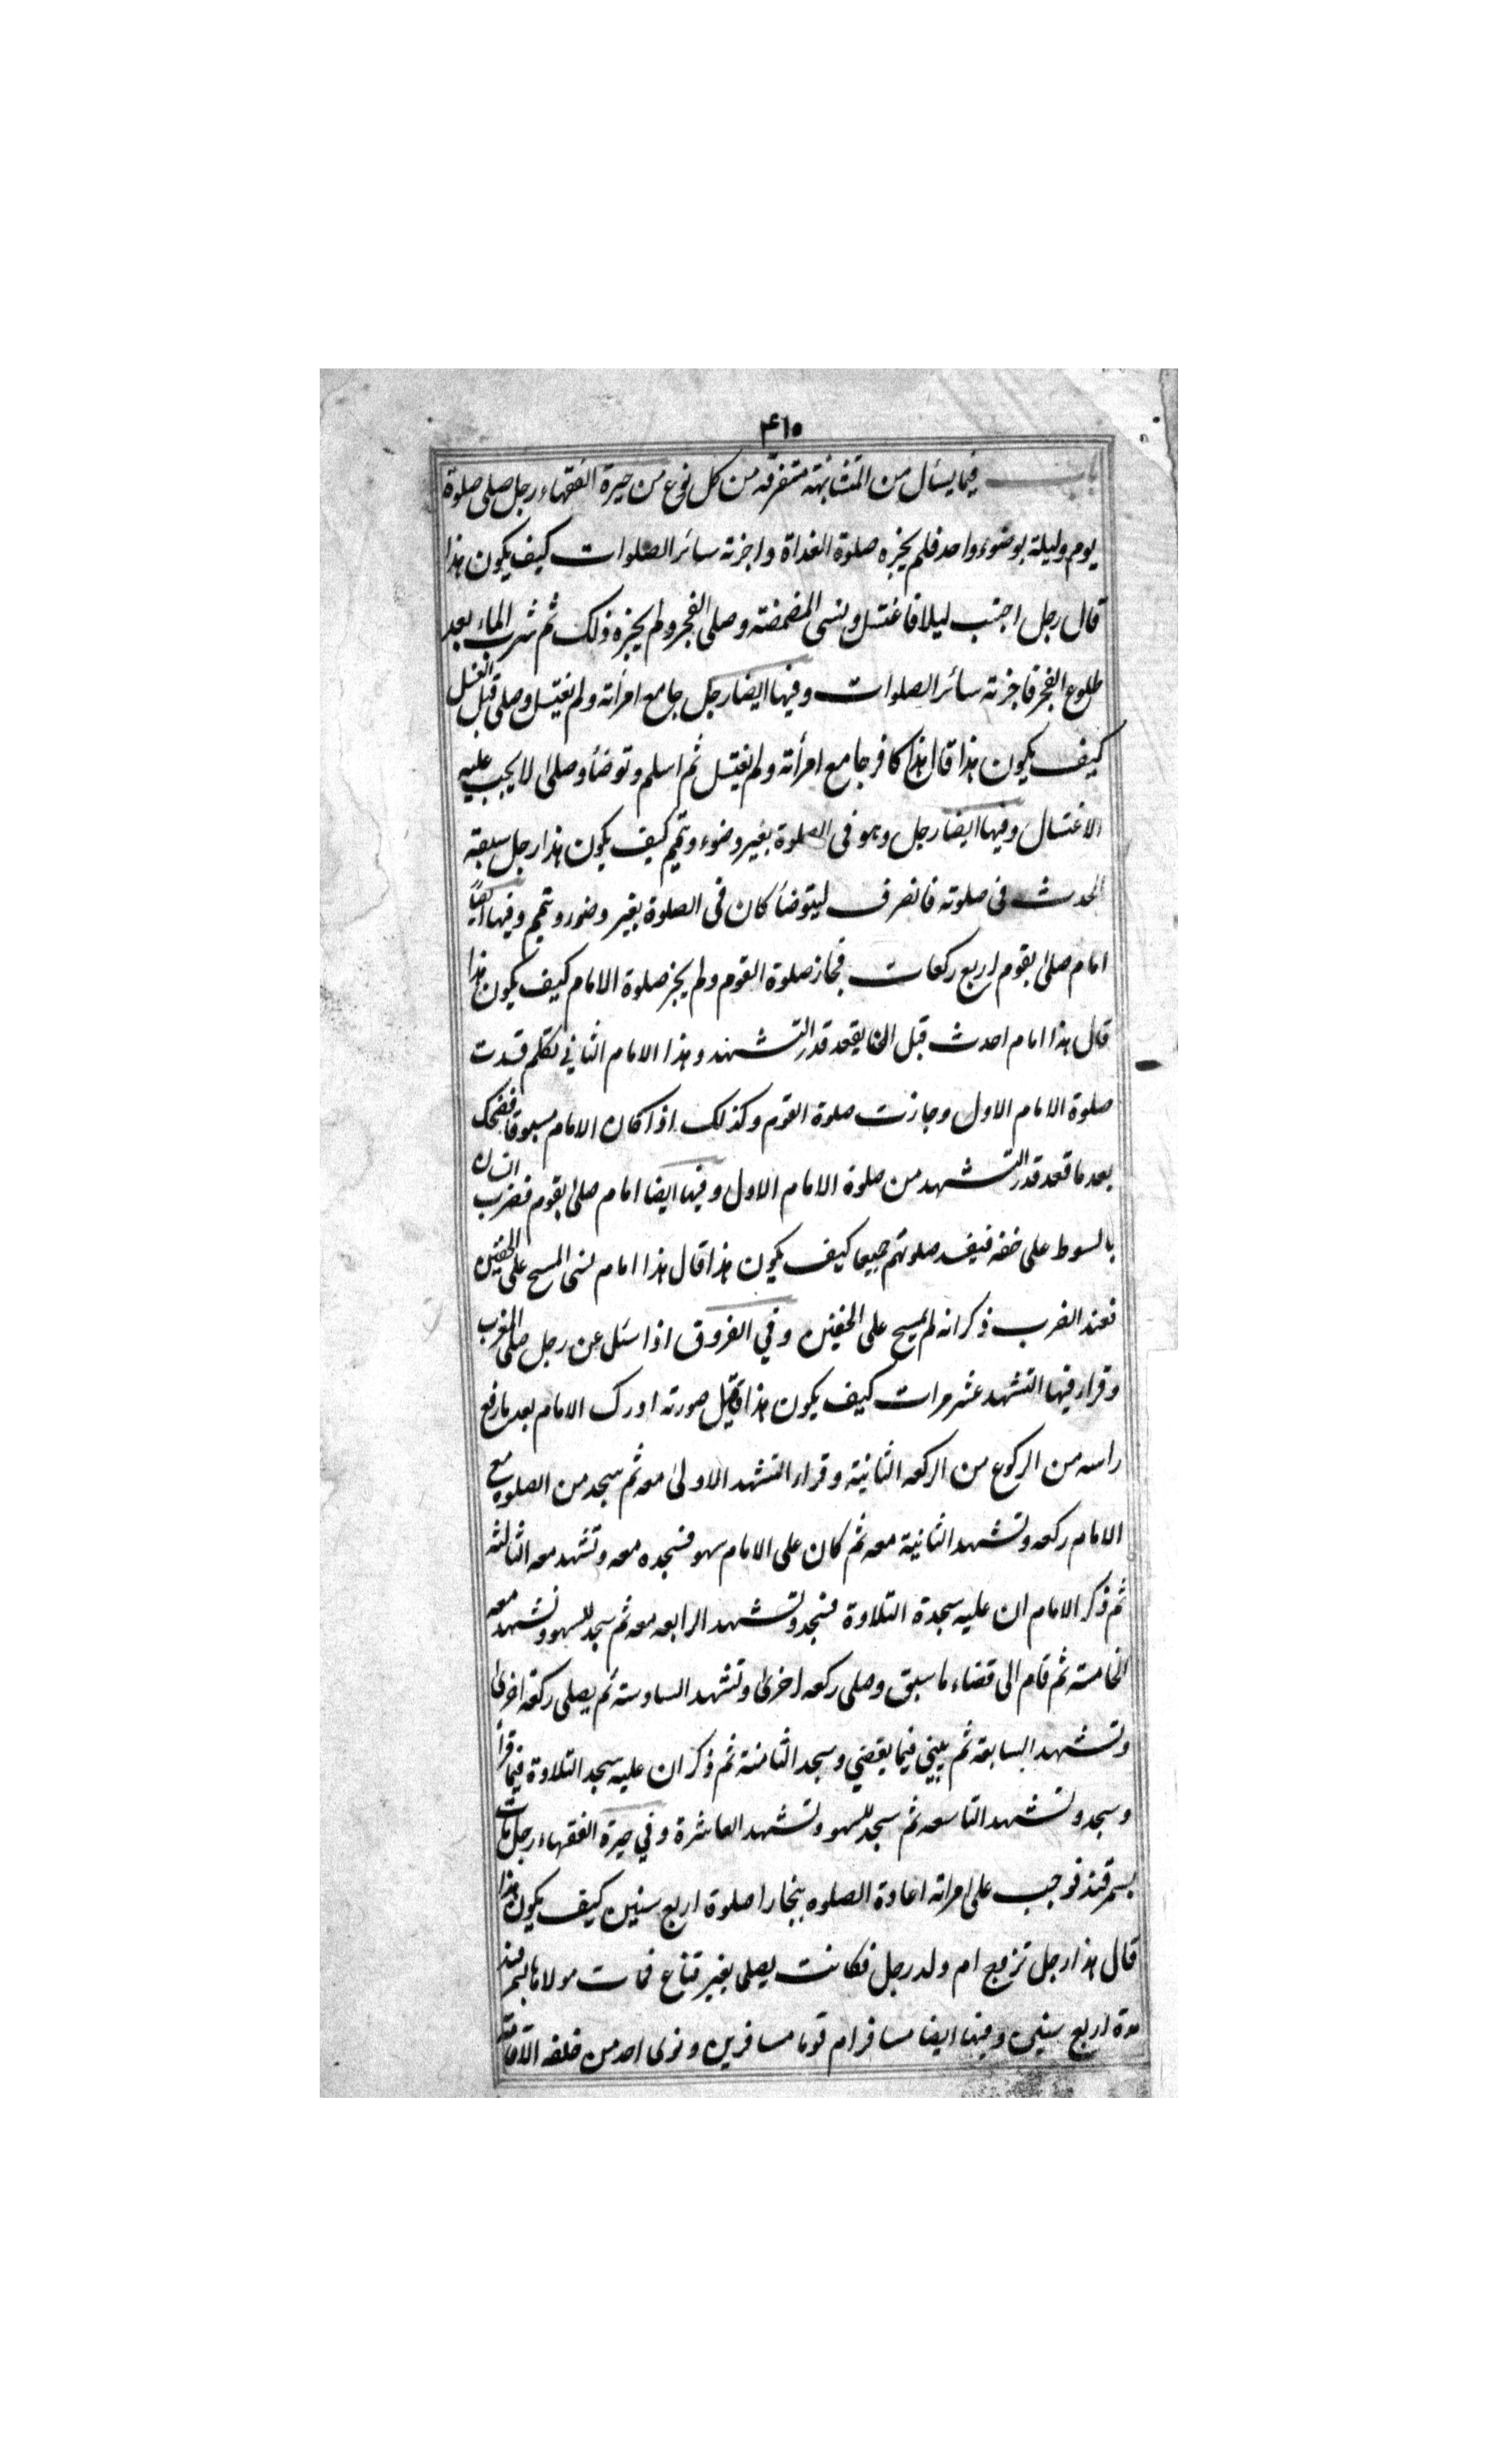 ٤٦٥
باب فيما يسأل من المتشابهة متفرقه من كل نوع من حيرة الفقهاء رجل صلى صلوة
يوم وليلة بوضوء واحد فلم يجزه صلوة الغداة واجزته سائر الصلوات كيف يكون هذا
قال رجل اجنب ليلا فاغتسل ونسى المضمضة وصلى الفجر ولم يجزه ذلك ثم شرب الماء بعد
طلوع الفجر فاجزته سائر الصلوات وفيها ايضا رجل جامع امرأته ولم يغتسل وصلى قبل الغسل
كيف يكون هذا قال هذا كافر جامع امرأته ولم يغتسل ثم اسلم وتوضأ وصلى لا يجب عليه
الاغتسال وفيها ايضا رجل وهو فى الصلوة بغير وضوء وتيمم كيف يكون هذا رجل سبقه
الحدث فى صلوته فانصرف ليتوضأ كان فى الصلوة بغير وضوء وتيمم وفيها ايضا
امام صلى بقوم اربع ركعات فجاز صلوة القوم ولم يجز صلوة الامام كيف يكون هذا
قال هذا امام احدث قبل ان يقعد قدر التشهد وهذا الامام الثاني تكلم فسدت
صلوة الامام الاول وجازت صلوة القوم وكذلك اذا كان الامام مسبوقا فضحك
بعد ما قعد قدر التشهد من صلوة الامام الاول وفيها ايضا امام صلى بقوم فضرب انسان
بالسوط على خفه فيفسد صلوتهم جميعا كيف يكون هذا قال هذا امام نسى المسح على الخفين
فعند الضرب ذكر انه لم يمسح على الخفين وفي الفروق اذا سئل عن رجل صلى المغرب
وقراء فيها التشهد عشر مرات كيف يكون هذا قيل صورته ادرك الامام بعد ما رفع
راسه من الركوع من الركعه الثانية وقراء التشهد الاولى معه ثم سجد من الصلوه مع
الامام ركعه وتشهد الثانية معه ثم كان على الامام سهو فسجده معه وتشهد معه الثالثه
ثم ذكر الامام ان عليه سجدة التلاوة فسجد وتشهد الرابعه معه ثم سجد للسهو وتشهد معه
الخامسة ثم قام الى قضاء ما سبق وصلى ركعه اخرى وتشهد السادسة ثم يصلى ركعة اخرى
وتشهد السابعة ثم يبني فيما يقضي وسجد الثامنة ثم ذكر ان عليه سجد التلاوة فيما قرأ
وسجد وتشهد التاسعه ثم سجد للسهو وتشهد العاشرة وفي حيرة الفقهاء رجل مات
بسمرقند فوجب على امراته اعادة الصلوه ببخارا صلوة اربع سنين كيف يكون هذا
قال هذا رجل تزوج ام ولد رجل فكانت يصلى بغير قناع فمات مولاها بسمرقند
مدة اربع سنين وفيها ايضا مسافر ام قوما مسافرين ونوى احد من خلفه الاقامة